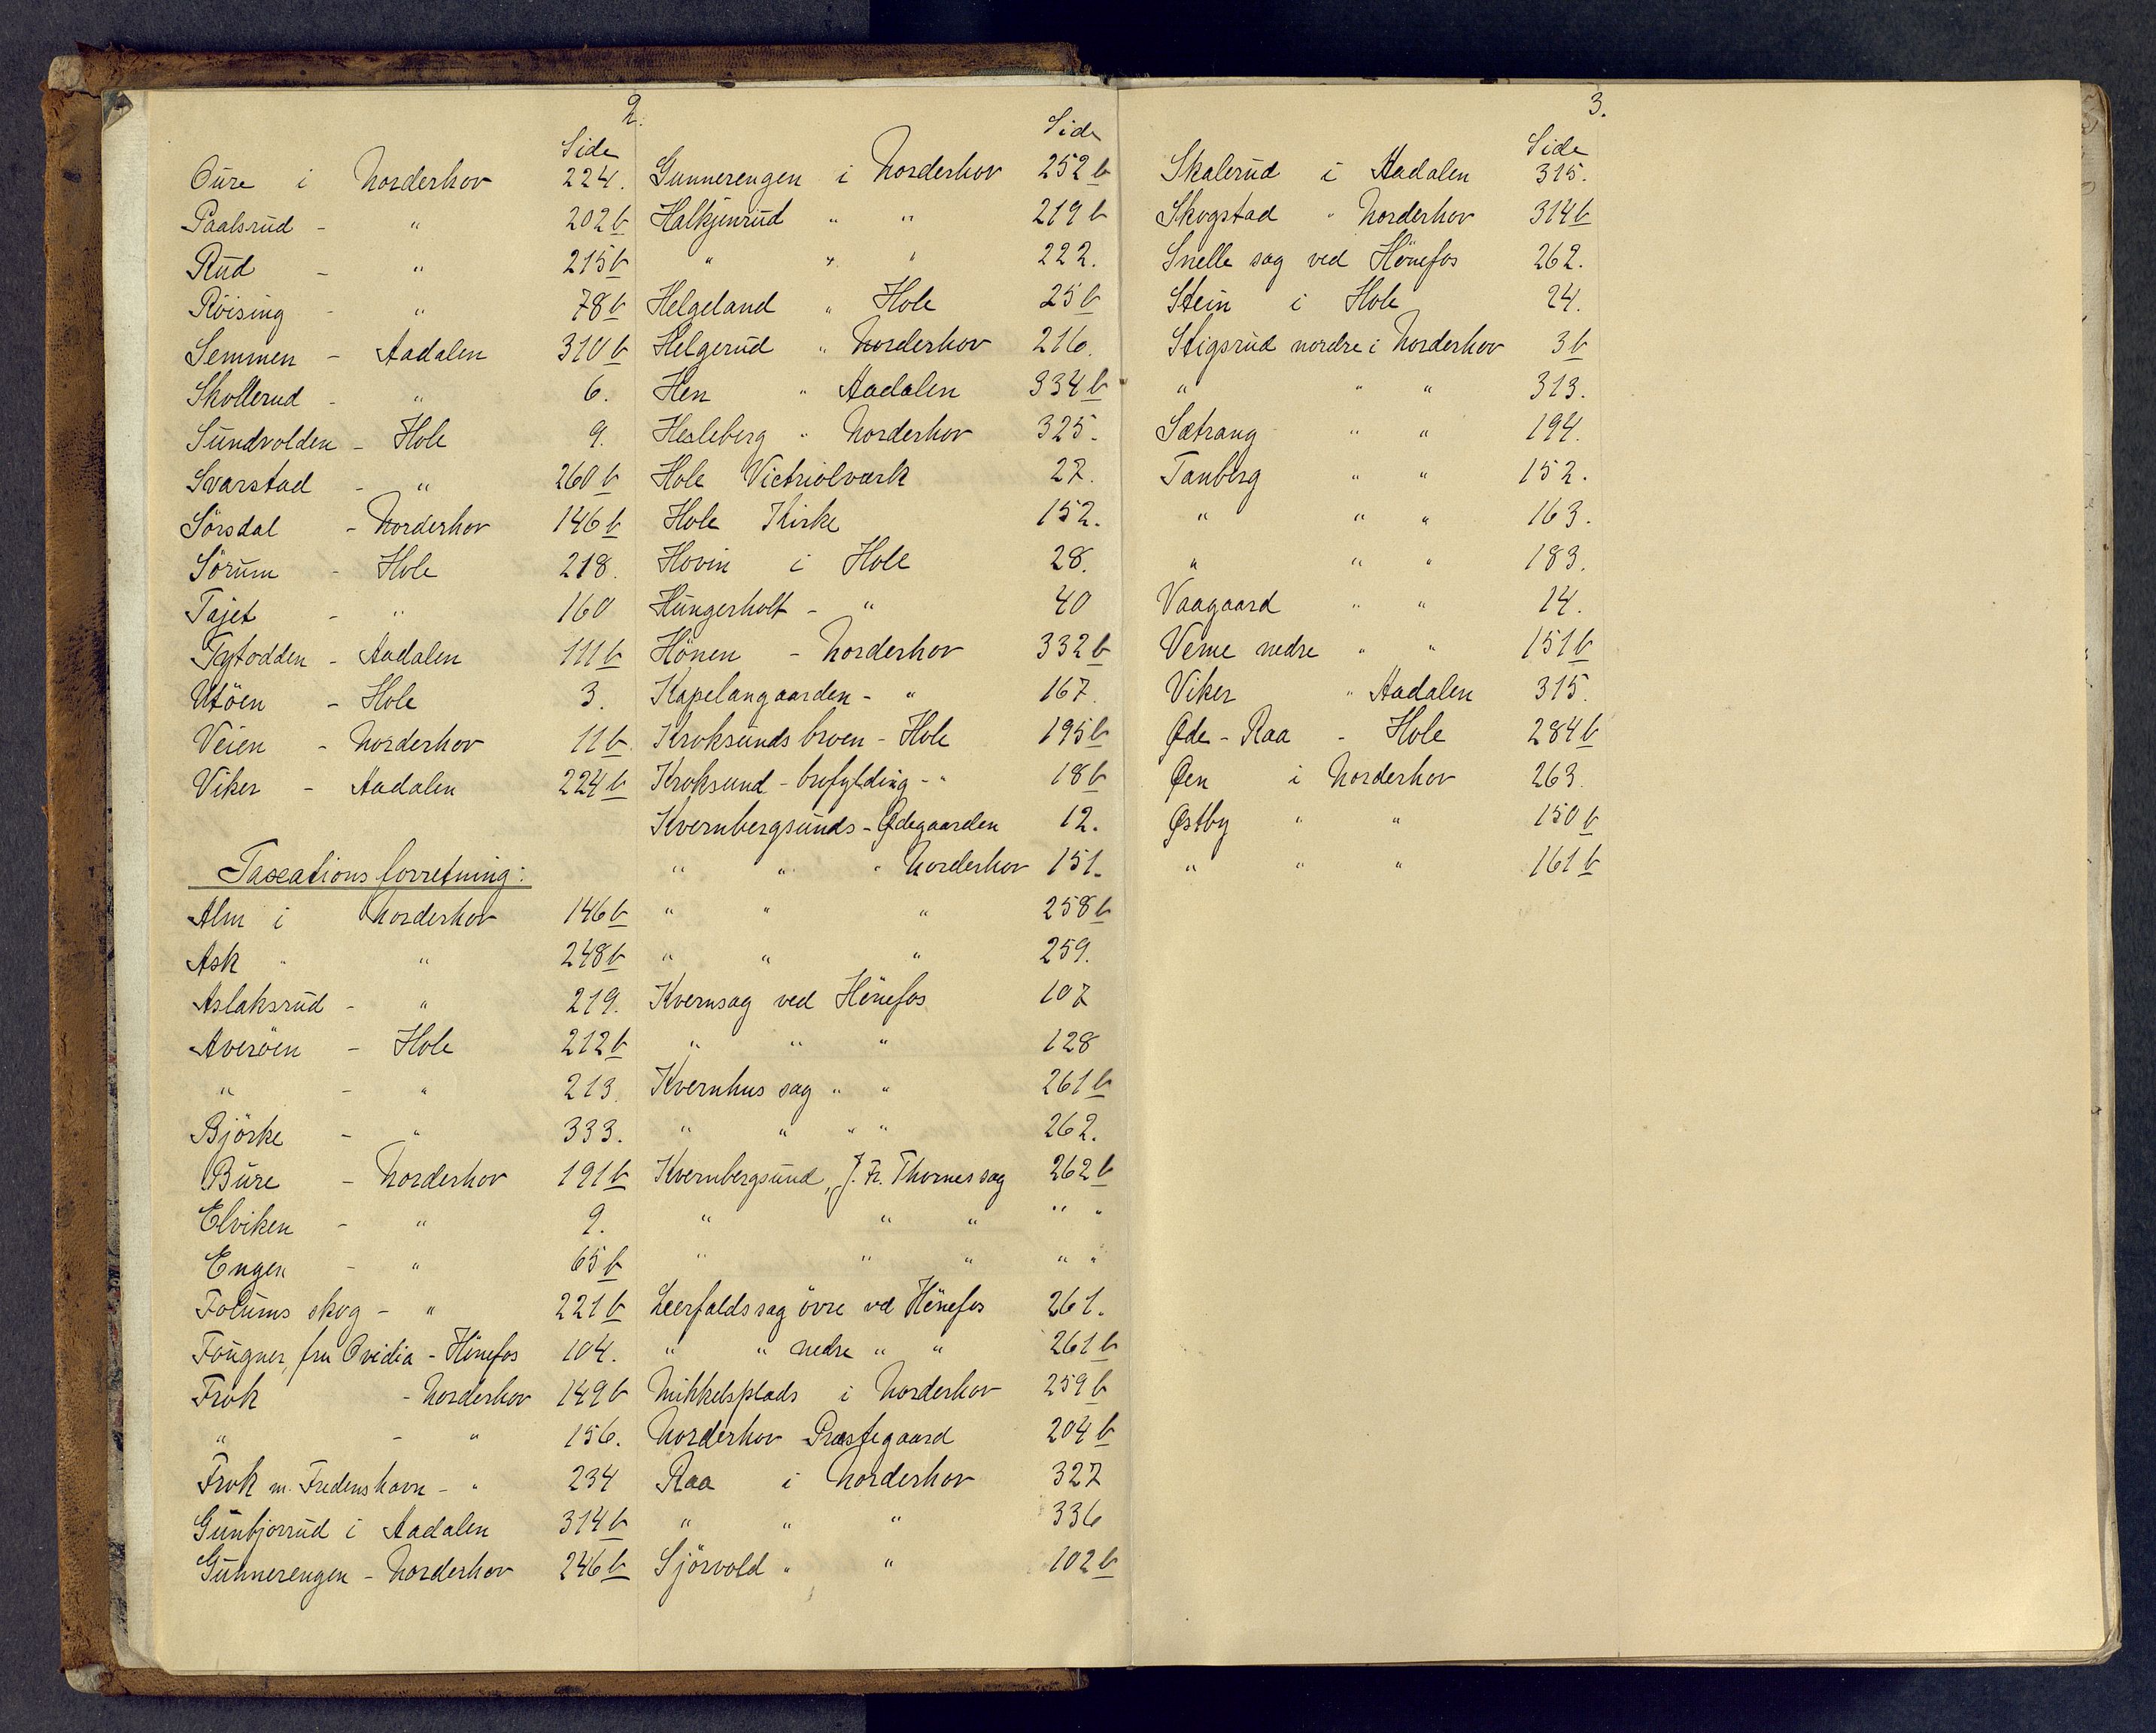 2.
Side
Oure i Norderhov 224.
Paalsrud - " 202 b
Rud - " 215 b
Röising - " 78 b
Semmen - Aadalen 310 b
Skollerud - " 6.
Sundvolden - Hole 9.
Svarstad - " 260 b
Sörsdal - Norderhov 146 b
Sörum - Hole 218.
Tajet - " 160
Tytodden - Aadalen 111 b
Utöen - Hole 3.
Veien - Norderhov 11 b
Viker - Aadalen 224 b
Taxations forretning:
Alm i Norderhov 146 b
Ask " " 248 b
Aslaksrud - " 219.
Averöen - Hole 212 b
" - " 213.
Björke - " 333.
Bure - Norderhov 191 b
Elviken - " 9.
Engen - " 65 b
Folums skog - " 221 b
Fougner, fru Ovidia - Hönefos 104.
Frok - Norderhov 149 b
" - " 156.
Frok m. Fredenshavn - " 234
Gunbjorrud i Aadalen 314 b
Gunnerengen - Norderhov 246 b
Side
Gunnerengen i Norderhov 252 b
Halkjenrud " " 219 b
" " " 222.
Helgeland " Hole 25 b
Helgerud " Norderhov 216.
Hen " Aadalen 334 b
Hesleberg " Norderhov 325.
Hole Victriolværk 27.
Hole Kirke 152.
Hovin i Hole 28.
Hungerholt - " 40
Hönen - Norderhov 332 b
Kapelangaarden - " 167.
Kroksunds broen - Hole 195 b
Kroksund - brofylding - " 18 b
Kvernbergsunds - Ødegaarden 12.
" " " Norderhov 151.
" " " 258 b
" " " 259.
Kvernsag ved Hönefos 107
" " " 128
Kvernhus sag " " 261 b
" " " " 262.
Kvernbergsund, J. Fr. Thornes sag 262 b
" " " " "
" " " " "
Leerfaldssag övre ved Hönefos 261.
" " nedre " " 261 b
Mikkelsplads i Norderhov 259 b
Norderhov Præstegaard 204 b
Raa i Norderhov 327
" " " 336
Sjörvold " " 102 b
3.
Side
Skalerud i Aadalen 315.
Skogstad " Norderhov 314 b
Snelle sag ved Hönefos 262.
Stein i Hole 24.
Stigsrud nordre i Norderhov 3 b
" " " 313.
Sætrang " " 194.
Tanberg " " 152.
" " " 163.
" " " 183.
Vaagaard " " 14.
Verne nedre " " 151 b
Viker " Aadalen 315.
Øde - Raa - Hole 284 b
Øen i Norderhov 263.
Østby " " 150 b
" " " 161 b